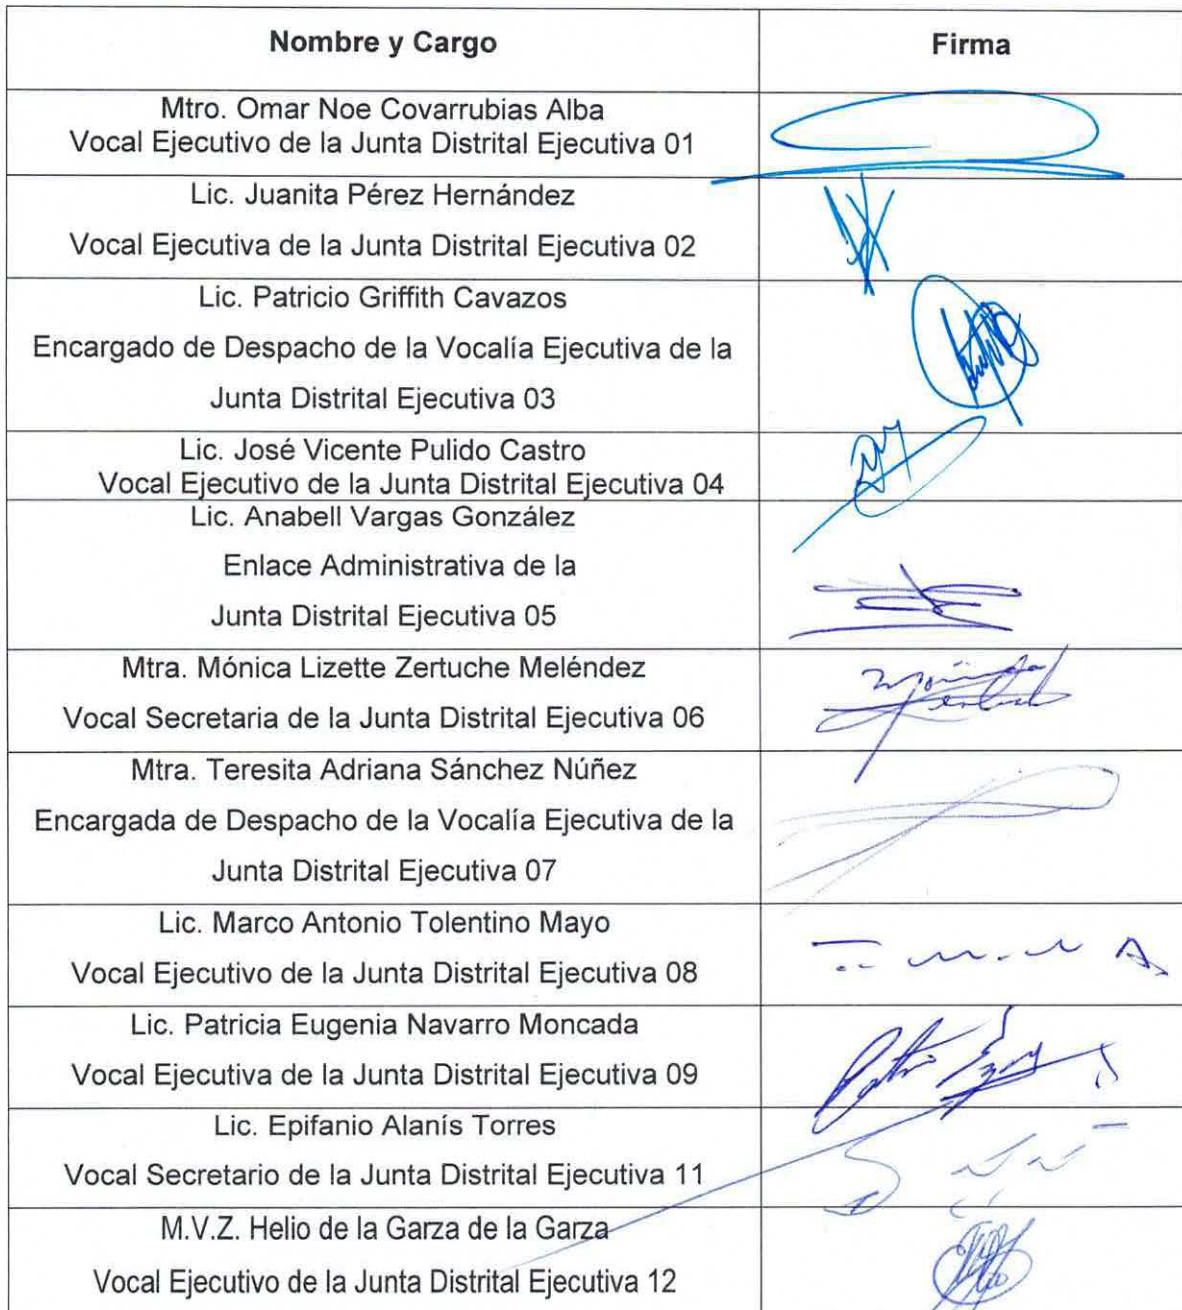 Nombre y Cargo Firma
Mtro. Omar Noe Covarrubias Alba
Vocal Ejecutivo de la Junta Distrital Ejecutiva 01
Lic. Juanita Pérez Hernández
Vocal Ejecutiva de la Junta Distrital Ejecutiva 02
Lic. Patricio Griffith Cavazos
Encargado de Despacho de la Vocalía Ejecutiva de la
Junta Distrital Ejecutiva 03
Lic. José Vicente Pulido Castro
Vocal Ejecutivo de la Junta Distrital Ejecutiva 04
Lic. Anabell Vargas González
Enlace Administrativa de la
Junta Distrital Ejecutiva 05
Mtra. Mónica Lizette Zertuche Meléndez
Vocal Secretaria de la Junta Distrital Ejecutiva 06
Mtra. Teresita Adriana Sánchez Núñez
Encargada de Despacho de la Vocalía Ejecutiva de la
Junta Distrital Ejecutiva 07
Lic. Marco Antonio Tolentino Mayo
Vocal Ejecutivo de la Junta Distrital Ejecutiva 08
Lic. Patricia Eugenia Navarro Moncada
Vocal Ejecutiva de la Junta Distrital Ejecutiva 09
Lic. Epifanio Alanís Torres
Vocal Secretario de la Junta Distrital Ejecutiva 11
M.V.Z. Helio de la Garza de la Garza
Vocal Ejecutivo de la Junta Distrital Ejecutiva 12